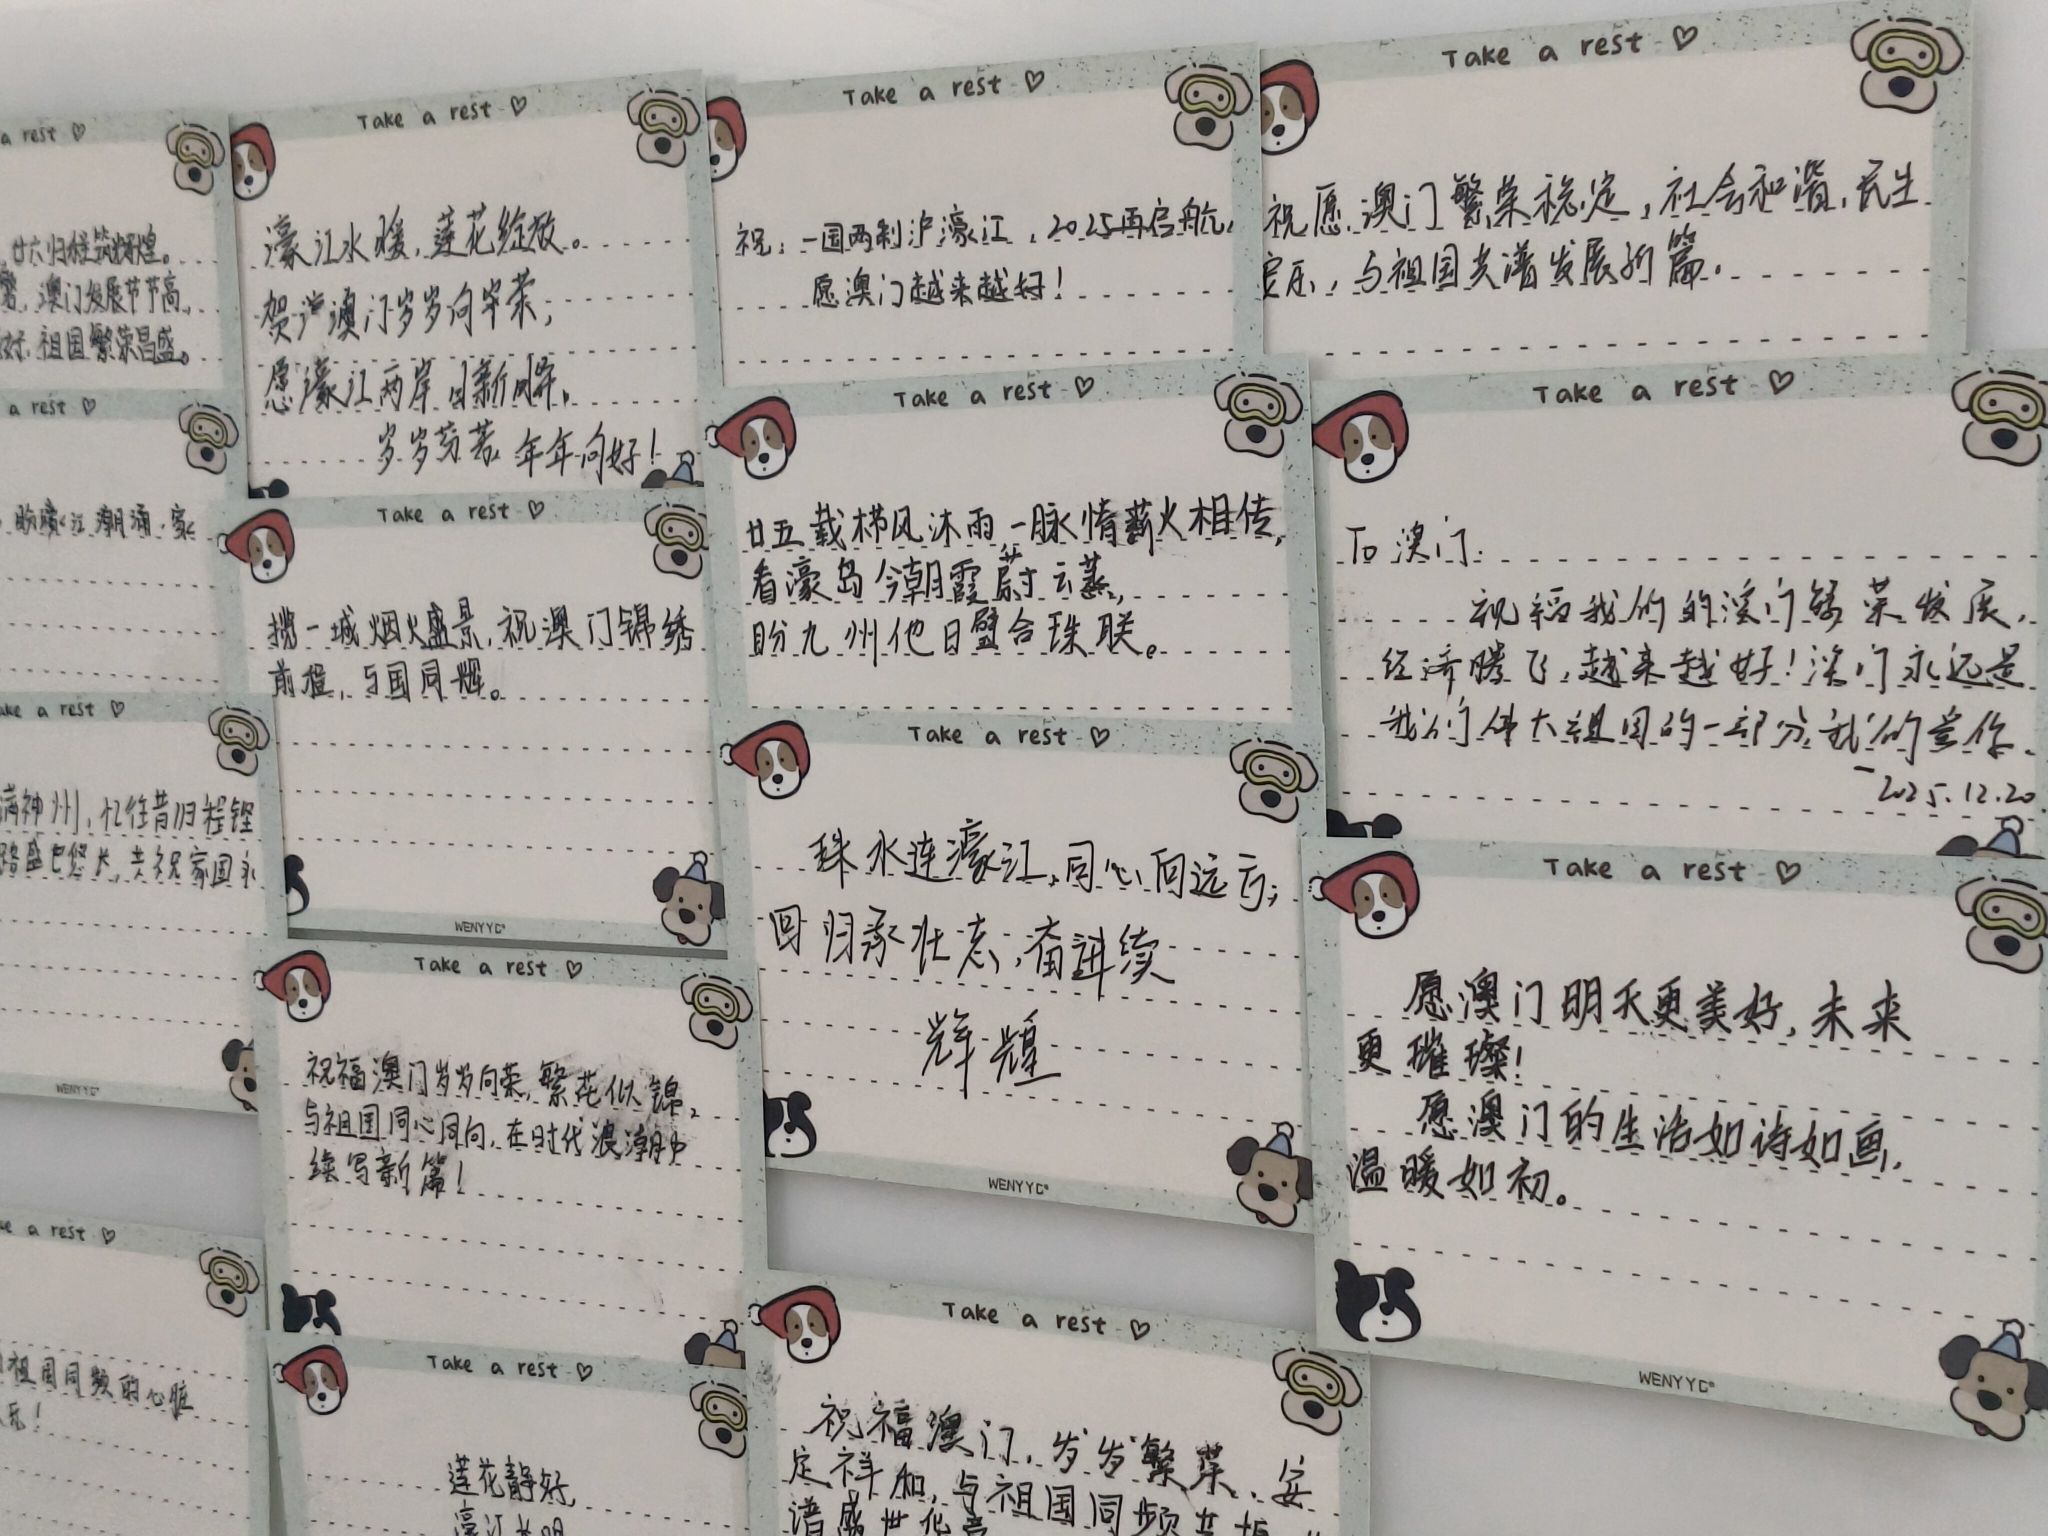 a rest ♡
廿六归程筑辉煌。
澳门发展节节高,
好,祖国繁荣昌盛。
a rest ♡
盼濠江潮涌,家
ake a rest ♡
满神州,忆往昔归程铿
路盛世悠长,共祝家国永
WENYYC®
ke a rest ♡
祖国同频的心脏
乐!
Take a rest ♡
濠江水暖,莲花绽放。
贺澳门岁岁向荣,
愿濠江两岸日新月异,
岁岁芬芳,年年向好!
Take a rest ♡
揽一城烟火盛景,祝澳门锦绣
前程,与国同辉。
WENYYC®
Take a rest ♡
祝福澳门岁岁向荣,繁花似锦,
与祖国同心同向,在时代浪潮中
续写新篇!
Take a rest ♡
莲花静好,
濠江长明
Take a rest ♡
祝:一国两制沪濠江,2025再启航,
愿澳门越来越好!
Take a rest ♡
廿五载栉风沐雨,一脉情薪火相传,
看濠岛今朝霞蔚云蒸,
盼九州他日璧合珠联。
Take a rest ♡
珠水连濠江,同心向远方;
回归承壮志,奋进续
辉煌
WENYYC®
Take a rest ♡
祝福澳门,岁岁繁荣,安
定祥和,与祖国同频共振,
谱盛世华章
Take a rest ♡
祝愿澳门繁荣稳定,社会和谐,民生
安乐,与祖国共谱发展新篇。
Take a rest ♡
To 澳门:
祝福我们的澳门繁荣发展,
经济腾飞,越来越好!澳门永远是
我们伟大祖国的一部分,我们爱你、
—2025.12.20
Take a rest ♡
愿澳门明天更美好,未来
更璀璨!
愿澳门的生活如诗如画,
温暖如初。
WENYYC®